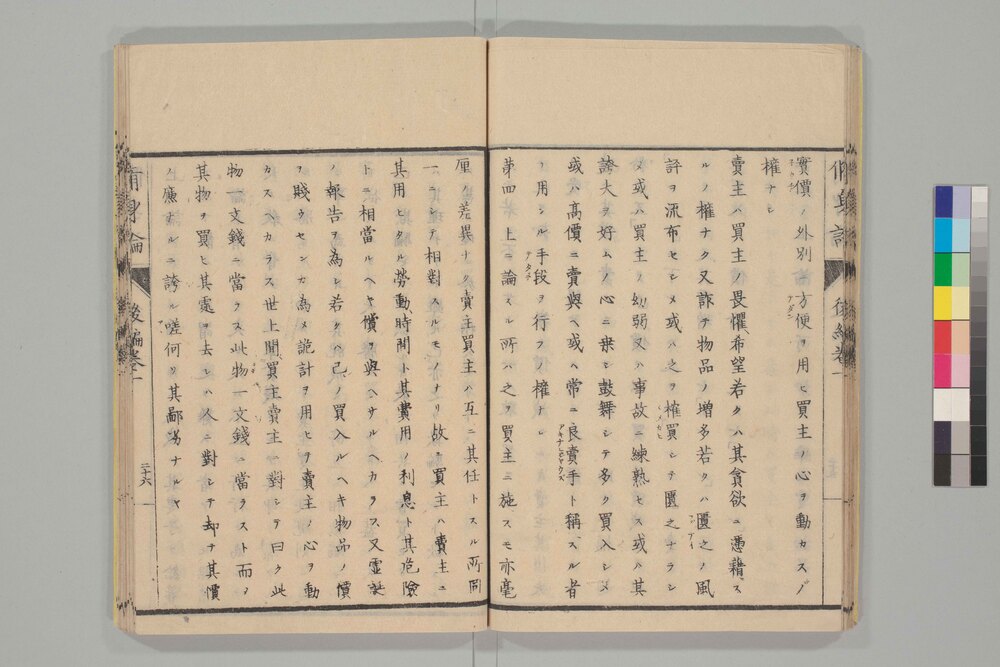 實價ノ外別ニ方便ヲ用ヒ買主ノ心ヲ動カスノ
權ナシ
賣主ハ買主ノ畏懼、希望若クハ其貪欲ニ憑藉ス
ルノ權ナク又詐テ物品ノ增多若クハ匱乏ノ風
評ヲ流布セシメ或ハ之ヲ榷買シテ匱乏ナラシ
メ或ハ買主ノ幼弱又ハ事故ニ練熟セス或ハ其
誇大ヲ好ムノ心ニ乗シ鼓舞シテ多ク買入シメ
或ハ高價ニ賣與ヘ或ハ常ニ良賣手ト稱スル者
ノ用フル手段ヲ行フノ權ナシ
第四上ニ論スル所ハ之ヲ買主ニ施スモ亦毫
厘ノ差異ナク賣主買主ハ互ニ其任トスル所同
一ニシテ相對スルモノナリ故ニ買主ハ賣主ニ
其用ヒタル勞動、時間ト其費用ノ利息ト其危險
トニ相當ルヘキ償ヲ與ヘサルヘカラス又虚誕
ノ報告ヲ為シ若クハ己ノ買入ルヘキ物品ノ價
ヲ賤ウセンカ為メ詭計ヲ用ヒヲ賣主ノ心ヲ動
カスヘカラス世上聞買主賣主ニ對シテ曰ク此
物一文錢ニ當ラス此物一文錢ニ當ラスト而ノ
其物ヲ買ヒ其處ヲ去レハ人ニ對シテ却テ其價
ノ廉ナルニ誇ル嗟何ソ其鄙劣ナルヤ
脩身論
後編卷一
二十六